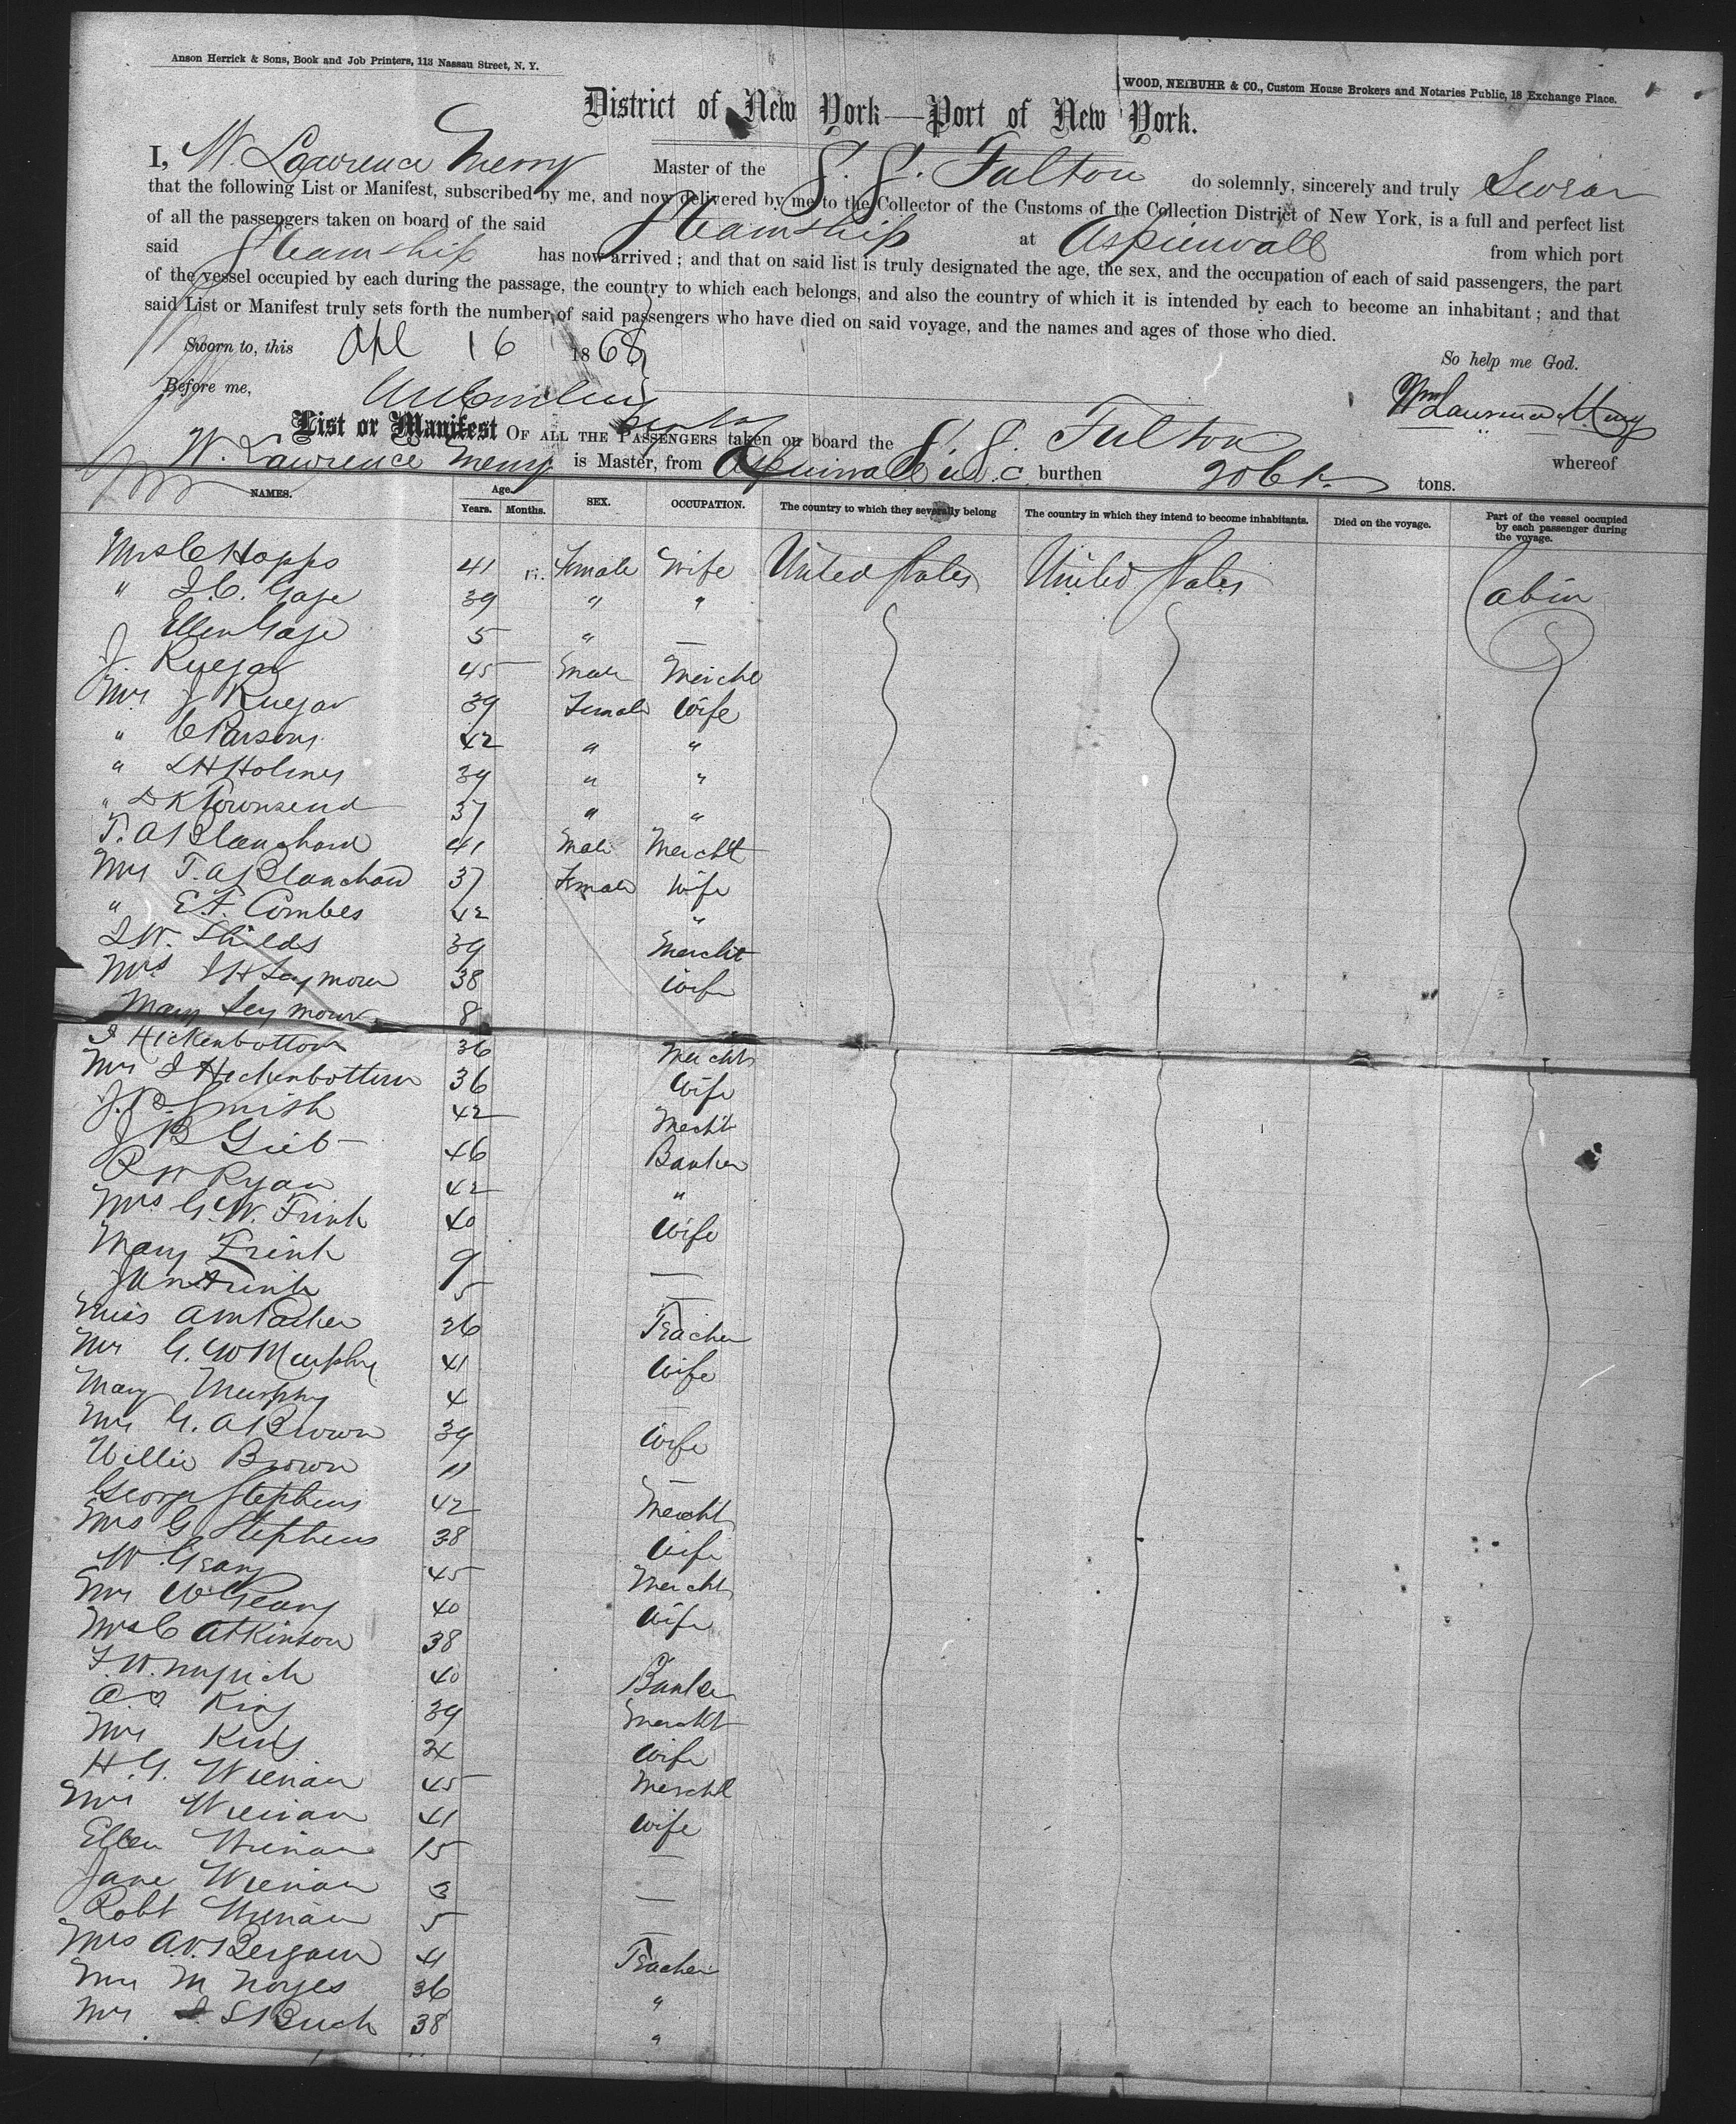 Anson Herrick & Sons, Book and Job Printers, 113 Nassau Street, N. Y.
WOOD, NEIBUHR & CO., Custom House Brokers and Notaries Public, 18 Exchange Place.
District of New York—Port of New York.
I, W. Lawrence Merry Master of the S. S. Fulton do solemnly, sincerely and truly Swear
that the following List or Manifest, subscribed by me, and now delivered by me to the Collector of the Customs of the Collection District of New York, is a full and perfect list
of all the passengers taken on board of the said Steamship at Aspinwall from which port
said Steamship has now arrived; and that on said list is truly designated the age, the sex, and the occupation of each of said passengers, the part
of the vessel occupied by each during the passage, the country to which each belongs, and also the country of which it is intended by each to become an inhabitant; and that
said List or Manifest truly sets forth the number of said passengers who have died on said voyage, and the names and ages of those who died.
Sworn to, this Apl 16 1868 So help me God.
Before me, Wm Lawrence Merry
List or Manifest OF ALL THE PASSENGERS taken on board the S. S. Fulton whereof
W. Lawrence Merry is Master, from Aspinwall U.S.C. burthen tons.
NAMES. Age. Years. Months. SEX. OCCUPATION. The country to which they severally belong The country in which they intend to become inhabitants. Died on the voyage. Part of the vessel occupied by each passenger during the voyage.
Mrs C Happs 41 Female Wife United States United States Cabin
" I. C. Gage 39 " "
Ellen Gage 5 " —
J. Ruegar 45 Male Mercht
Mrs J Ruegar 39 Female Wife
" C Parsons 42 " "
" L H Holmes 39 " "
" D K Townsend 37 " "
T. A Blanchard 41 Male Mercht
Mrs T. A Blanchard 37 Female Wife
" E. F. Combes 42 "
I. W. Shields 39 Mercht
Mrs I H Seymour 38 Wife
Mary Seymour 8
I Hickenbottom 36 Mercht
Mrs I Hickenbottom 36 Wife
J. P. Smith 42 Mecht
J B Gieb 46 Banker
R W Ryan 42 "
Mrs G. W. Frink 40 Wife
Mary Frink 9 —
Jane Frink 5 —
Miss A M Parker 26 Teacher
Mrs G. W Murphy 41 Wife
Mary Murphy 4 —
Mrs G. A Brown 39 Wife
Willie Brown 11 —
George Stephens 42 Mercht
Mrs G Stephens 38 Wife
W. Geary 45 Mercht
Mrs W Geary 40 Wife
Mrs C Atkinson 38
F. W. 40 Banker
A. S. King 39 Mercht
Mrs King 34 Wife
H. G. Wienan 45 Mercht
Mrs Wienan 41 Wife
Ellen Wienan 15 —
Jane Wienan 3
Robt Wienan 5 —
Mrs A. V. Bergam 41 Teacher
Mrs M Noyes 36 "
Mrs S Buck 38 "